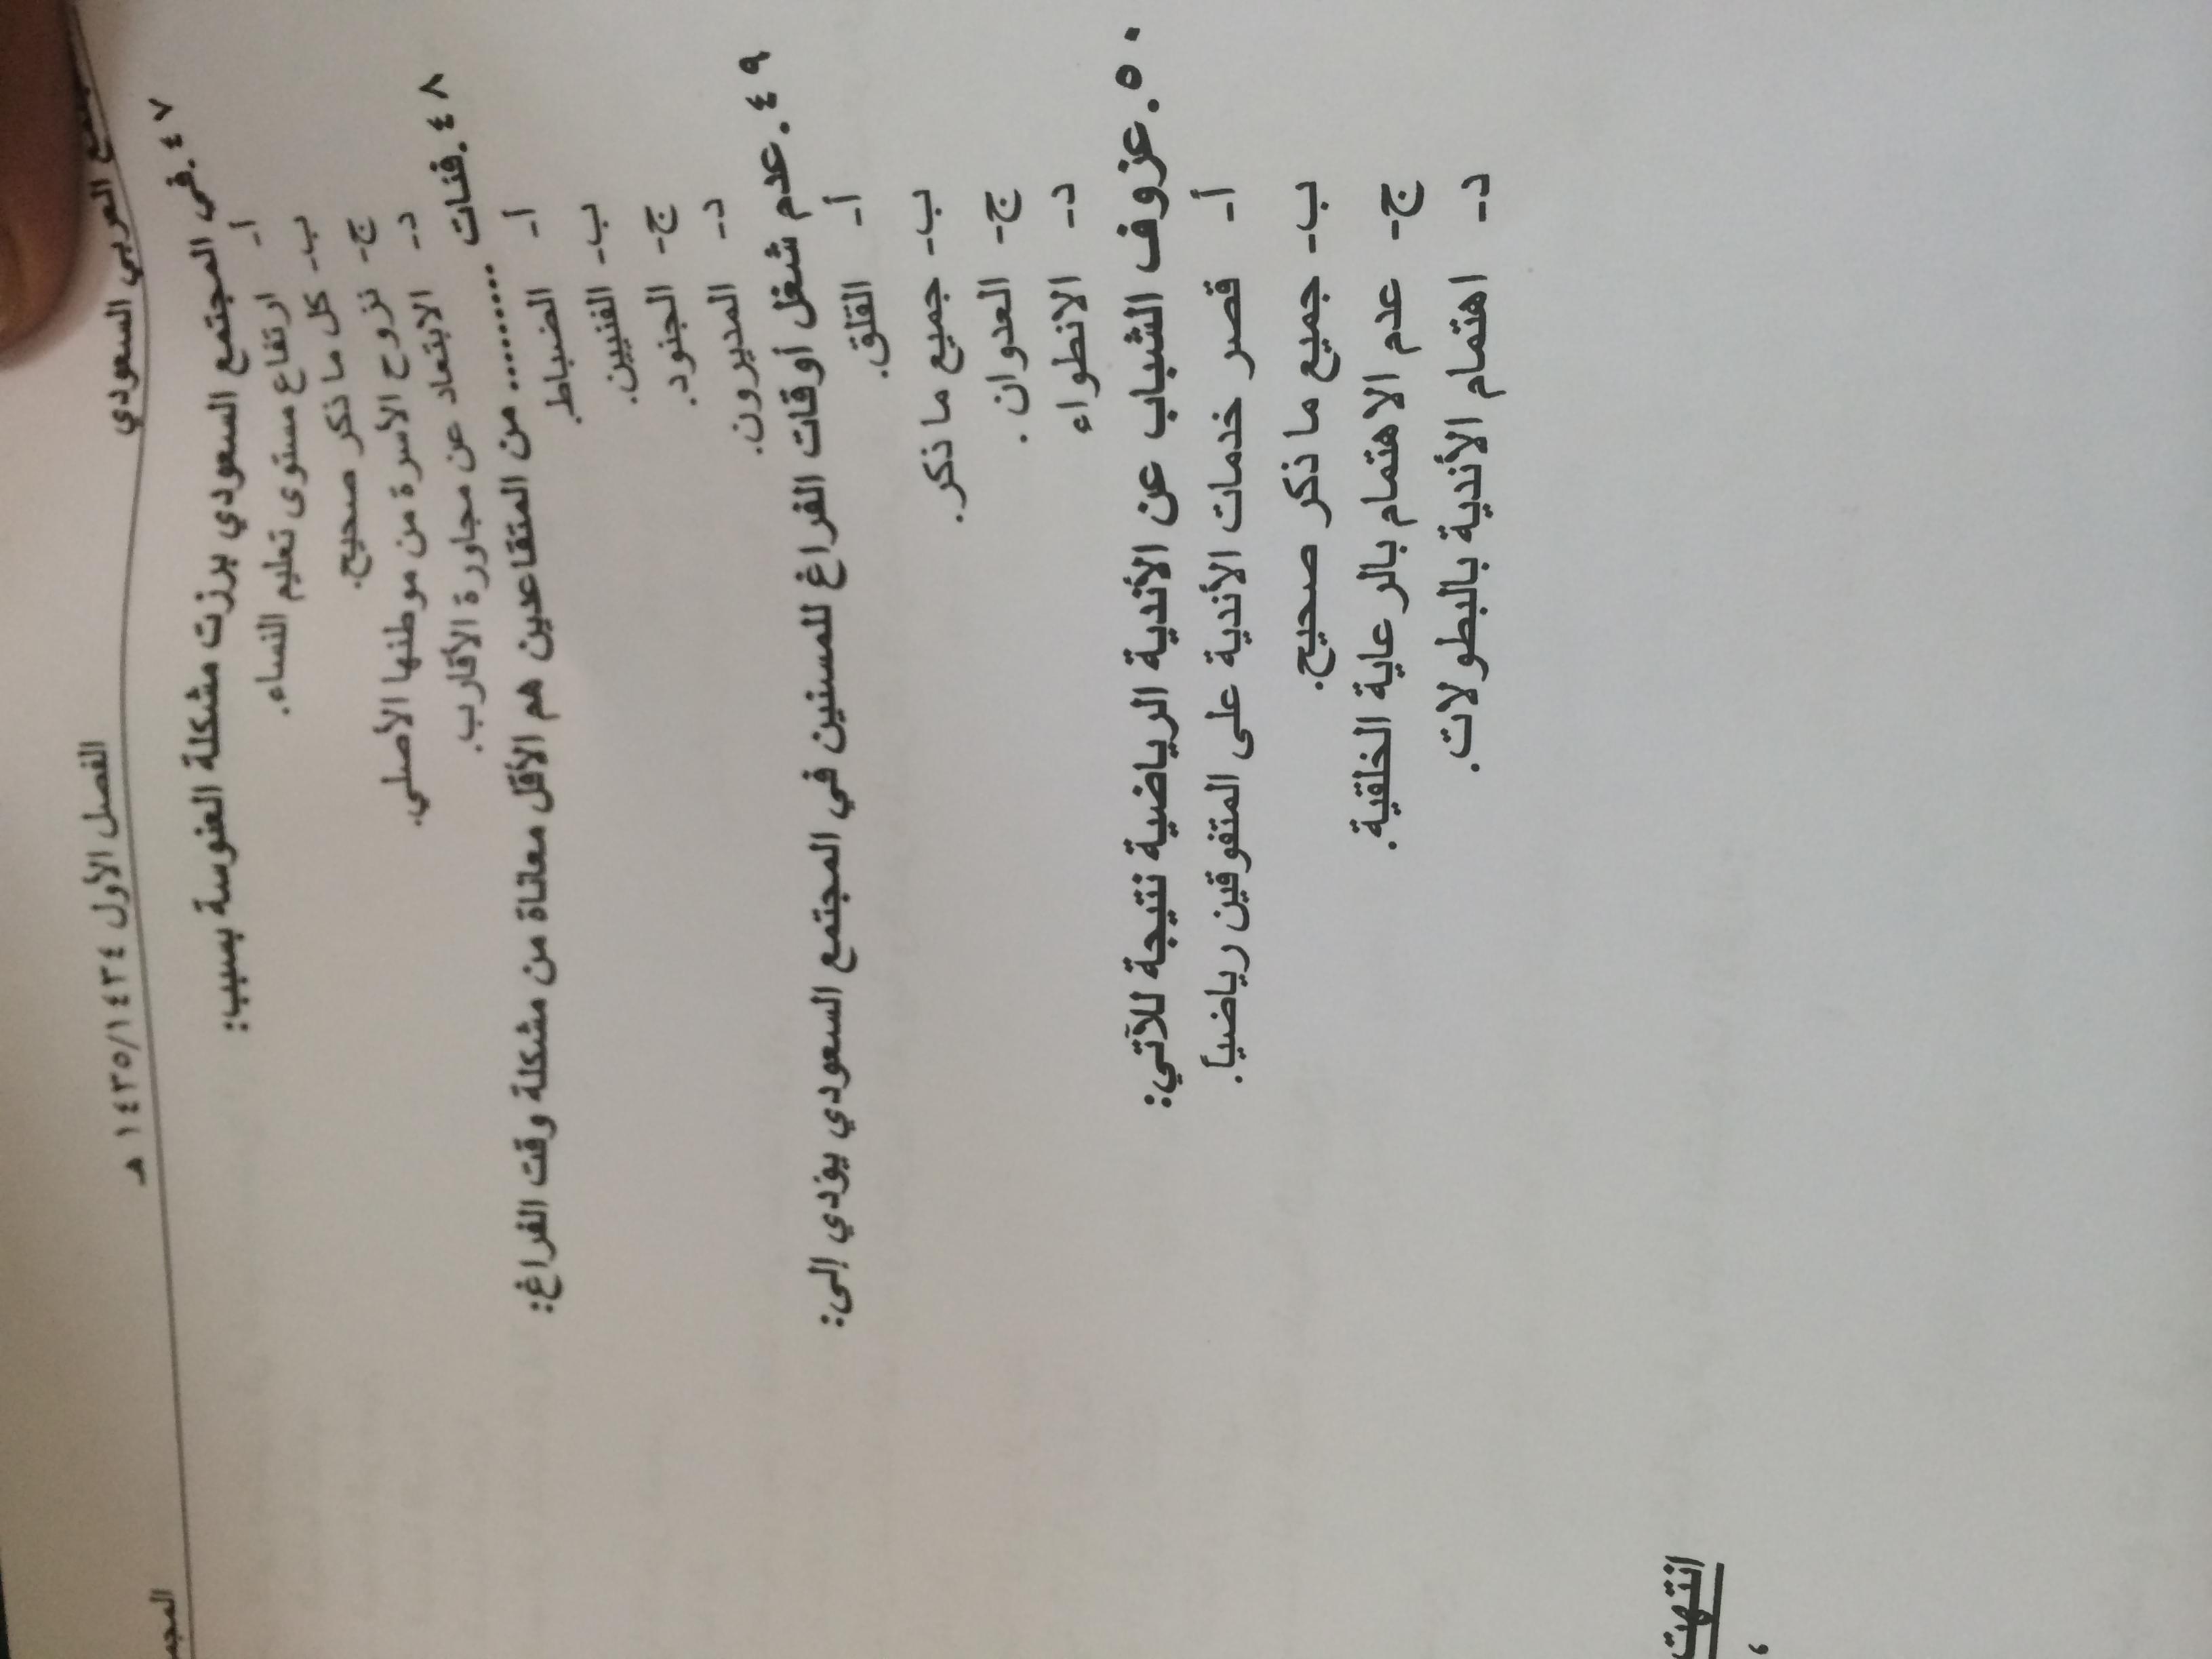 العربي السعودي
الفصل الأول ١٤٣٥/١٤٣٤ هـ
٤٧. في المجتمع السعودي برزت مشكلة العنوسة بسبب:
أ- ارتفاع مستوى تعليم النساء.
ب- كل ما ذكر صحيح.
ج- نزوح الأسرة من موطنها الأصلي.
د- الابتعاد عن مجاورة الأقارب.
٤٨. فئات ......... من المتقاعدين هم الأقل معاناة من مشكلة وقت الفراغ:
أ- الضباط.
ب- الفنيين.
ج- الجنود.
د- المديرون.
٤٩. عدم شغل أوقات الفراغ للمسنين في المجتمع السعودي يؤدي إلى:
أ- القلق.
ب- جميع ما ذكر.
ج- العدوان .
د- الانطواء
٥٠. عزوف الشباب عن الأندية الرياضية نتيجة للآتي:
أ- قصر خدمات الأندية على المتفوقين رياضياً.
ب- جميع ما ذكر صحيح.
ج- عدم الاهتمام بالرعاية الخلقية.
د- اهتمام الأندية بالبطولات.
انتهت